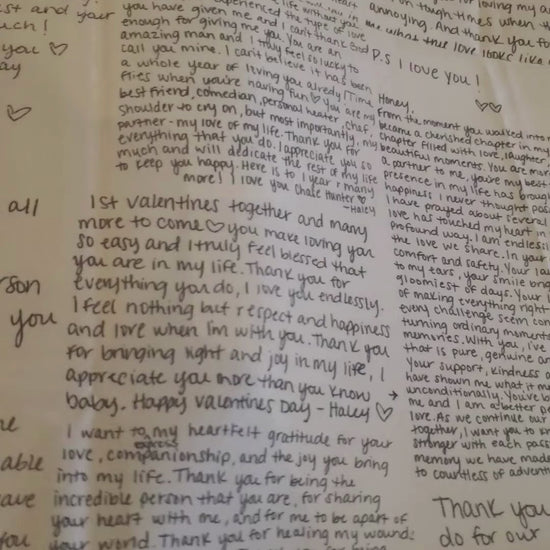 ist and your
uch!
you ♡
ay
♡
all
rson
you
able
ave
you
you have given me and I can't thank God
enough for giving me you. You are an
amazing man and I truly feel so lucky to
call you mine. I can't believe it has been
a whole year of loving you already! Time
flies when you're having fun ♡ you are my
best friend, comedian, personal heater, chef,
shoulder to cry on, but most importantly, my
partner - my love of my life. Thank you for
everything that you do. I appreciate you so
much and will dedicate the rest of my life
to keep you happy. Here is to 1 year & many
more! I love you Chase Hunter ♡
-Haley
1st Valentines together and many
more to come ♡ you make loving you
so easy and I truly feel blessed that
you are in my life. Thank you for
everything you do, I love you endlessly.
I feel nothing but respect and happiness
and love when I'm with you. Thank you
for bringing light and joy in my life, I
appreciate you more than you know
baby. Happy Valentines Day - Haley ♡
I want to express my heartfelt gratitude for your
love, companionship, and the joy you bring
into my life. Thank you for being the
incredible person that you are, for sharing
your heart with me, and for me to be apart of
your world. Thank you for healing my wound
for loving my
tough times when th
annoying. And thank you fo
what true love looks like
P.S I love you!
♡♡
Honey,
From the moment you walked into
became a cherished chapter in my
chapter filled with love, laughter
beautiful moments. You are mor
a partner to me, you're my best
presence in my life has broug
happiness I never thought pos
I have prayed about several
love has touched my heart in
profound way. I am endless
the love we share. In your
comfort and safety. Your la
to my ears, your smile
gloomiest of days. Your
of making everything right
every challenge seem con
turning ordinary moments
memories. With you, I've
that is pure, genuine an
Your support, kindness a
have shown me what it m
→ unconditionally. You've b
me and I am a better pe
love. As we continue our
together, I want you to kn
stronger with each pass
memory we have made
to countless of advent
Thank you
do for our